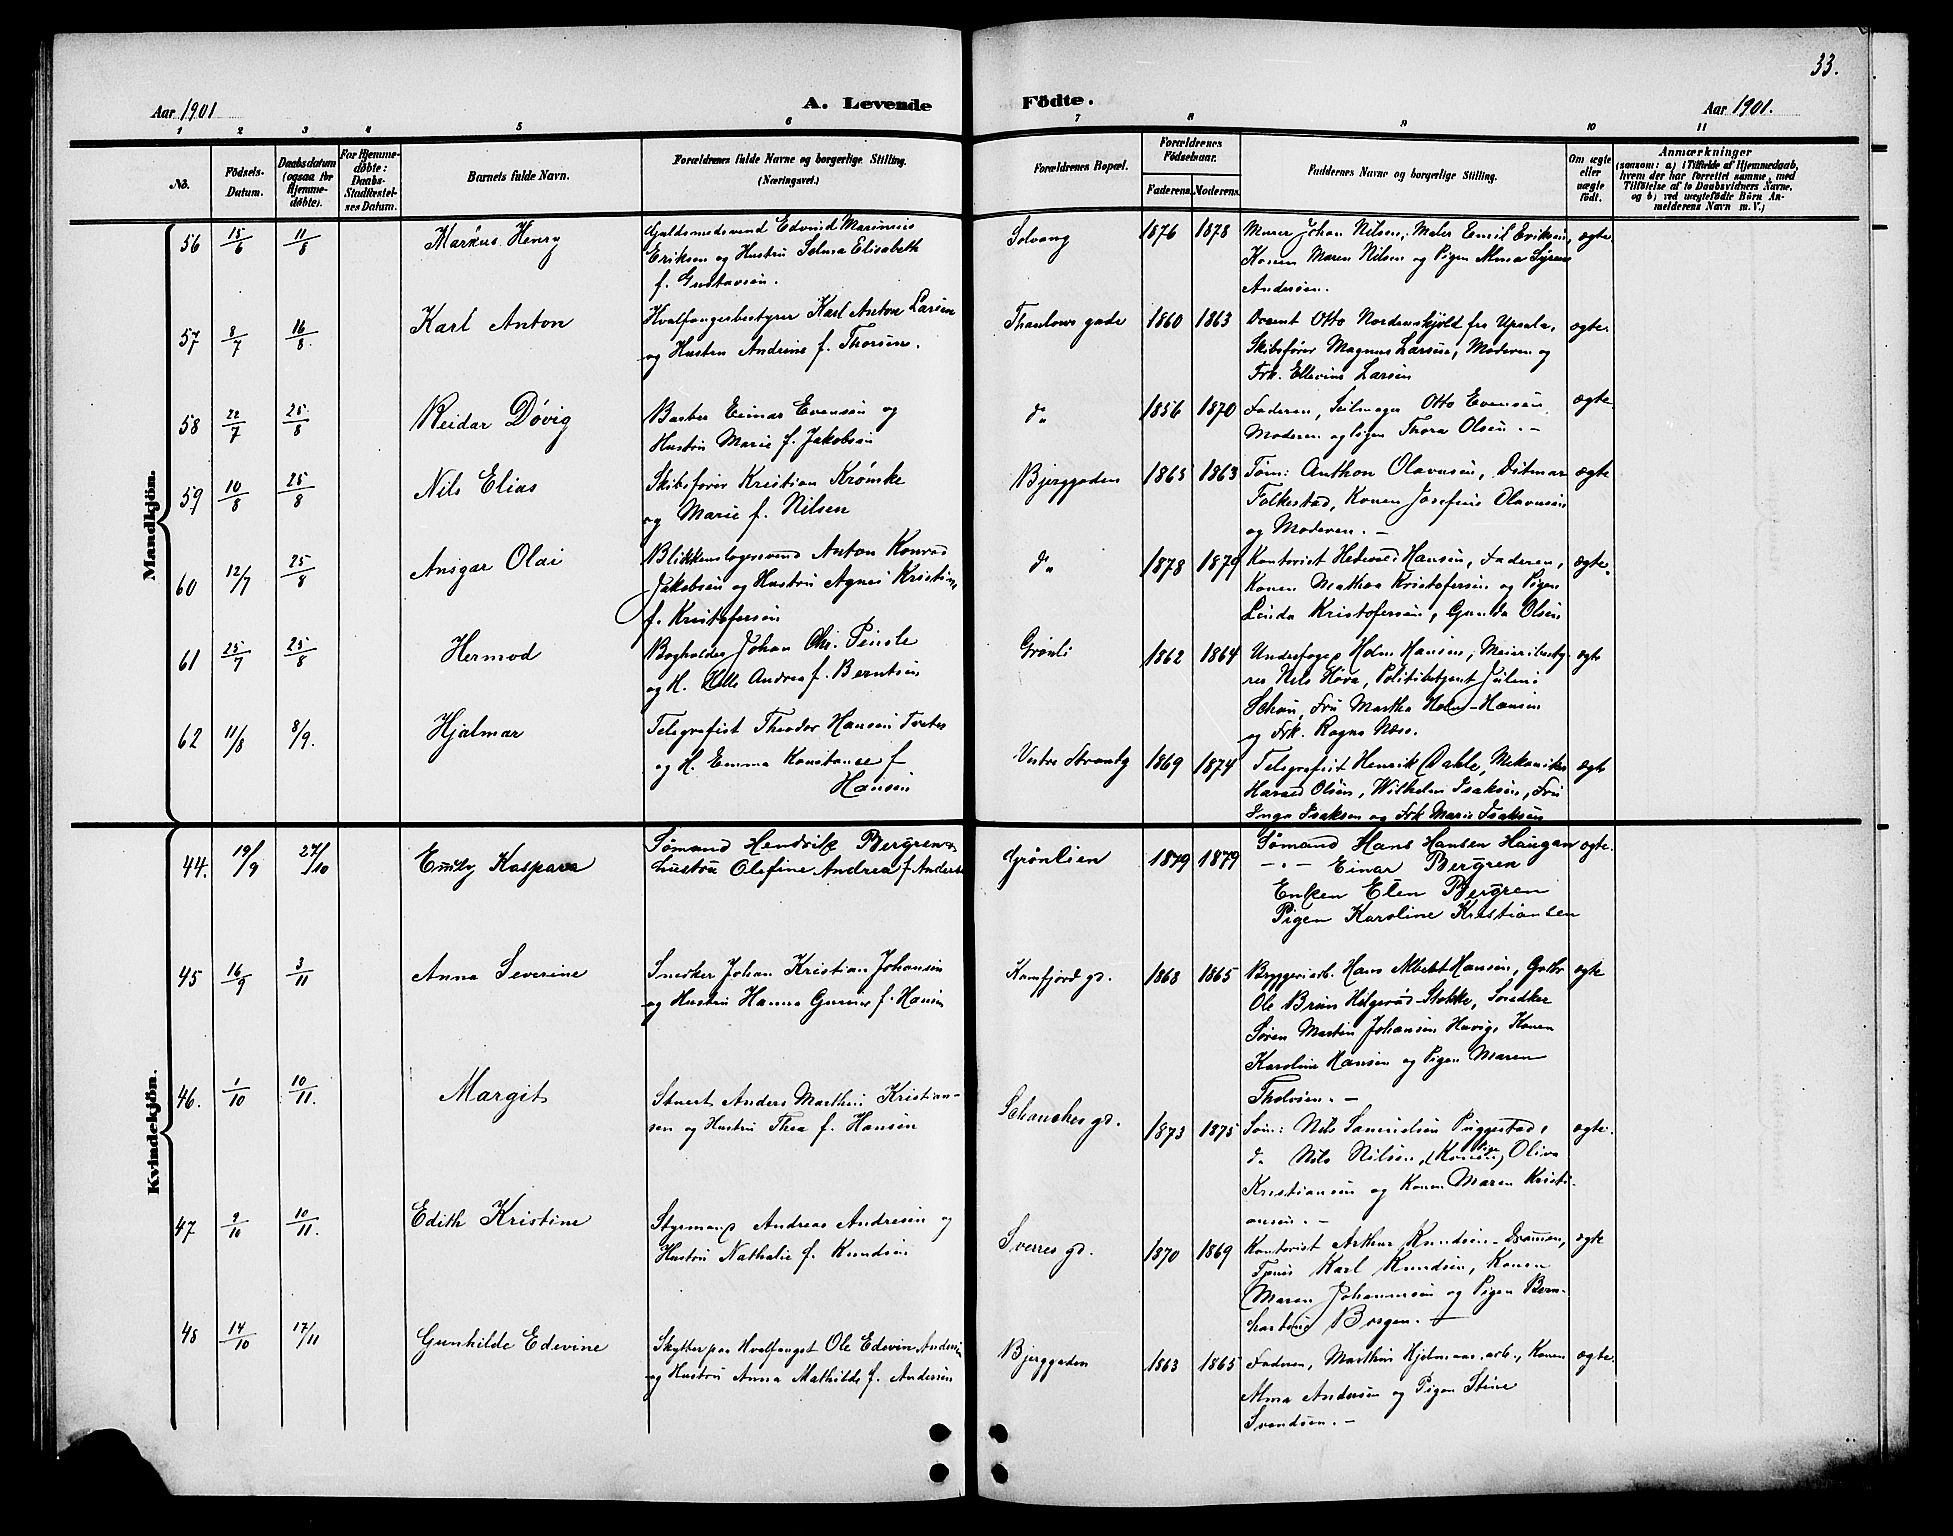 33.
Aar 1901
A. Levende
Födte.
Aar 1901.
1 2 3 4 5 6 7 8 9 10 11
No.
Födsels-Datum.
Daabsdatum (ogsaa for Hjemmedøbte).
For Hjemmedøbte: Daabs-Stadfæstelses Datum.
Barnets fulde Navn.
Forældrenes fulde Navne og borgerlige Stilling.
(Næringsvei.)
Forældrenes Bopæl.
Forældrenes Födselsaar.
Faderens. Moderens.
Faddernes Navne og borgerlige Stilling.
Om ægte eller uægte født.
Anmærkninger
(saasom: a) i Tilfælde af Hjemmedaab, hvem der har forrettet samme, med Tilföielse af to Daabsvidners Navne, og b) ved uægtefødte Börn Anmelderens Navn m. V.)
Mandkjön.
56 15/6 11/8 Markus Henry
Guldsmedsvend Edvind Marinius
Eriksen og Hustru Selma Elisabeth
f. Gustavsen.
Solvang 1876 1878
Murer Johan Nilsen, Maler Emil Eriksen, ægte.
Konen Maren Nilsen og Pigen Alma
Andersen.
57 8/7 16/8. Karl Anton
Hvalfangerbestyrer Karl Anton Larsen
og Hustru Andrine f. Thorsen.
Thaulows gade 1860 1863
Docent Otto Nordenskjold fra Upsala, ægte.
Skibsfører Magnus Larsen, Moderen og
Frk. Ellevine Larsen
58 22/7 25/8 Reidar Dövig
Barber Einar Evensen og
Hustru Marie f. Jakobsen
do 1856 1870
Faderen, Seilmager Otto Evensen, ægte.
Moderen og pigen Thora Olsen. –
59 10/8 25/8 Nils Elias
Skibsfører Kristian Krømke
og Marie f. Nilsen
Bjerggaden 1865 1863
Tøm: Anthon Olavesen, Ditmar ægte
Folkestad, Konen Josefine Olavesen
og Moderen. –
60 12/7 25/8 Ansgar Olai
Blikkenslagersvend Anton Konrad
Jakobsen og Hustru Agnes Kristine
f. Kristofersen
do 1878 1879
Kontorist Hansen, Faderen, ægte.
Konen Mathea Kristofersen og Pigen
Linda Kristofersen, Gunda Olsen
61 25/7 25/8 Hermod
Bogholder Johan Chr. Pindle
og H. Andrea f. Berntsen
Grønli 1862 1864
Underfoged Holm Hansen, Meieribesty- ægte
rer Nils Høve, Politibetjent
Schau, Fru Martha Holm-Hansen
og Frk. Ragna Næss.
62 11/8 8/9. Hjalmar
Telegrafist Theodor Hansen Tveter
og H. Emma Konstanse f
Hansen
Vestre Strandg 1869 1874
Telegrafist Henrik Dahle, Mekaniker ægte
Harald Olsen, Wilhelm Isaksen, Fru
Inga Isaksen og Frk Marie Isaksen
Kvindekjön.
44. 19/9 27/10 Emily Kaspara
Sømand Hendrik Bergren &
hustru Olefine Andrea f. Anders
Grönlien 1879 1879
Sømand Hans Hansen Haugan ægte.
— " — Einar Bergren
Enken Elen Bergren
Pigen Karoline Kristiansen
45 16/9 3/11 Anna Severine
Snedker Johan Kristian Johansen
og Hustru Hanna f. Hansen
Kamfjord gd. 1868 1865
Bryggeriarb. Hans Albert Hansen, Gaardbr ægte
Ole Brun Helgerød-Stokke, Snedker
Søren Martin Johansen Huvig, Konen
Karoline Hansen og Pigen Maren
Tholvsen. –
46. 1/10 10/11. Margit
Stuert Anders Marthin Kristian-
sen og Hustru Thea f. Hansen
Schanches gd. 1873 1875
Søm: Nils Samuelsen Puggestad, ægte.
do Nils Nilsen, (Konen) Pige Oliva
Kristiansen og Konen Maren Kristi-
ansen. –
47 9/10 10/11. Edith Kristine
Styrmand Andreas Andresen og
Hustru Nathalie f. Knudsen
Sverres gd. 1870 1869
Kontorist Arthur Knudsen – Drammen, ægte
Karl Knudsen, Konen
Maren Johannesen og Pigen Bern-
hardine Borgen. –
48 14/10 17/11 Gunhilde Edevine
Skytter paa Hvalfanget Ole Edevin Andersen
og Hustru Anna Mathilde f. Andersen
Bjerggaden 1863 1865
Faderen, Marthin Hjelmaas, arb., Konen ægte.
Alma Andersen og Pigen Stine
Svendsen. –